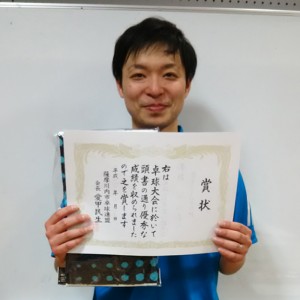 賞状
右は
卓球大会に於いて
頭書の通り優秀な
成績を収められました
ので之を賞します
平成 年 月 日
薩摩川内市卓球連盟
会長